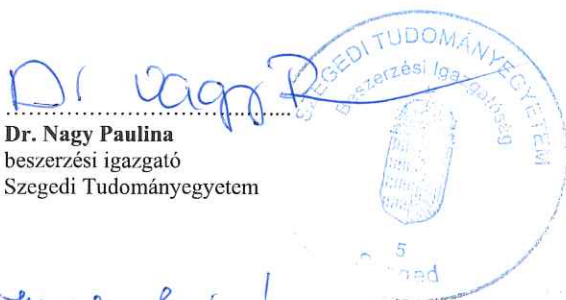 Dr Nagy P
SZEGEDI TUDOMÁNYEGYETEM
Beszerzési Igazgatóság
5
Szeged
Dr. Nagy Paulina
beszerzési igazgató
Szegedi Tudományegyetem